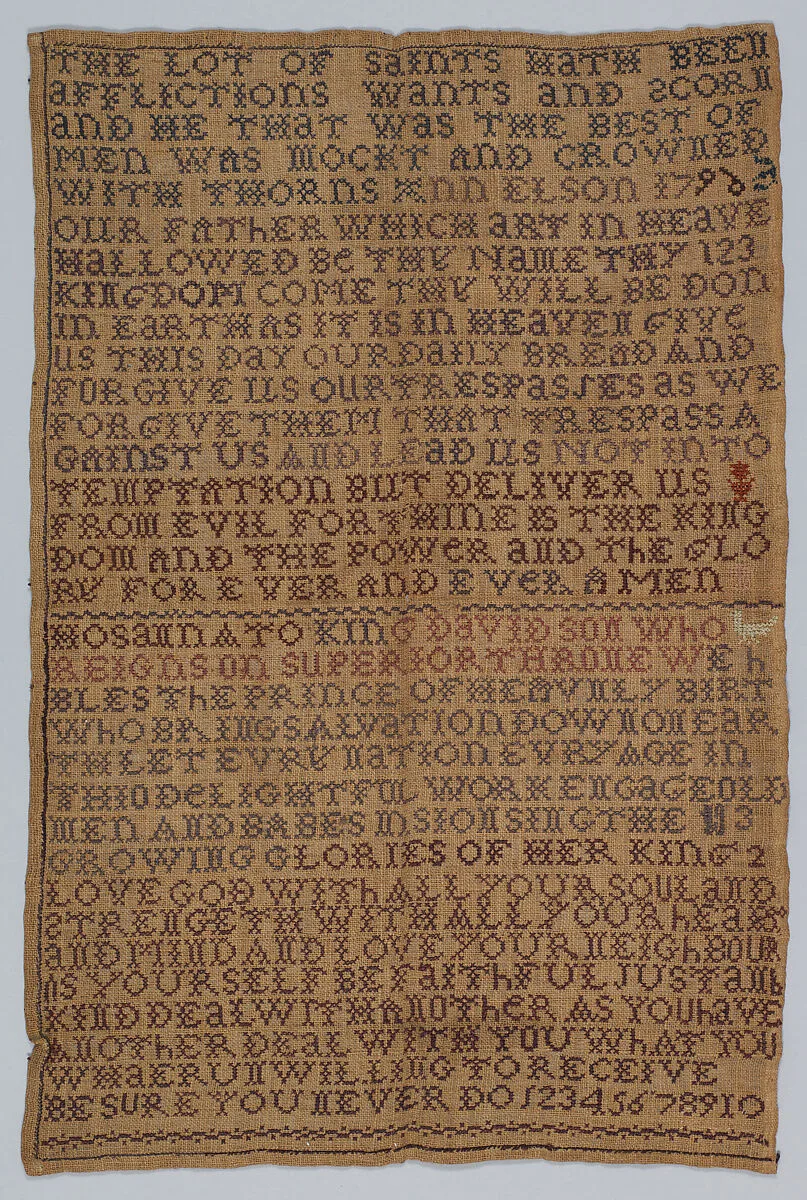 THE LOT OF SaINTS HATH BEEN
aFFLICTIONS WaNTS aND SCORN
aND HE THaT WaS THE BEST OF
MEN WAS MOCKT AND CROWNED
WITH THORNS ANN ELSON 1796
OUR FATHER WHICH ART IN HEAVE
HaLLOWED Be THY NaME THY 123
KINGDOM COME THY WILL BE DON
IN EaRTH AS IT IS IN HEAVEN GIVe
US THIS DaY OUR DaILY BREAD AND
FORGIVE US OUR TRESPaSSES aS WE
FORGIVE THEM THAT TRESPaSS A
GAINST US AND LEaD US NOT INTO
TEMPTATION BUT DELIVER US
FROM EVIL FOR THINE IS THE KING
DOM AND THE POWeR aND THE GLO
RY FOR E VER AND E VeR A MEN
HOSaNNA TO KING DaVID SON WhO
REIGNS ON SUPERIOR THRONE W E h
BLES ThE PRINCE OF HEAVNLY BIRT
WhO BRINGS ALVATION DOWN ON EAR
TH LET EVRY NATION EVRY AGE IN
THIO DeLIGHTFUL WORK ENGAGE OLD
MEN AND BABES IN SION SING THE 3
GROWING GLORIES OF HER KING 2
LOVE GOD WITh ALL YOUR SOUL AND
STRENGETH WITH ALL YOUR hEAR
aND MIND AND LOVE YOUR NEIGhBOUR
AS YOURSELF BE FaITHFUL JUST AND
KIND DEaL WITH ANOThER AS YOU haVE
ANOTHER DEAL WITH YOU WhAT YOU
WHAER UNWILLING TO RECEIVE
BE SURE YOU NEVER DO 12345678910